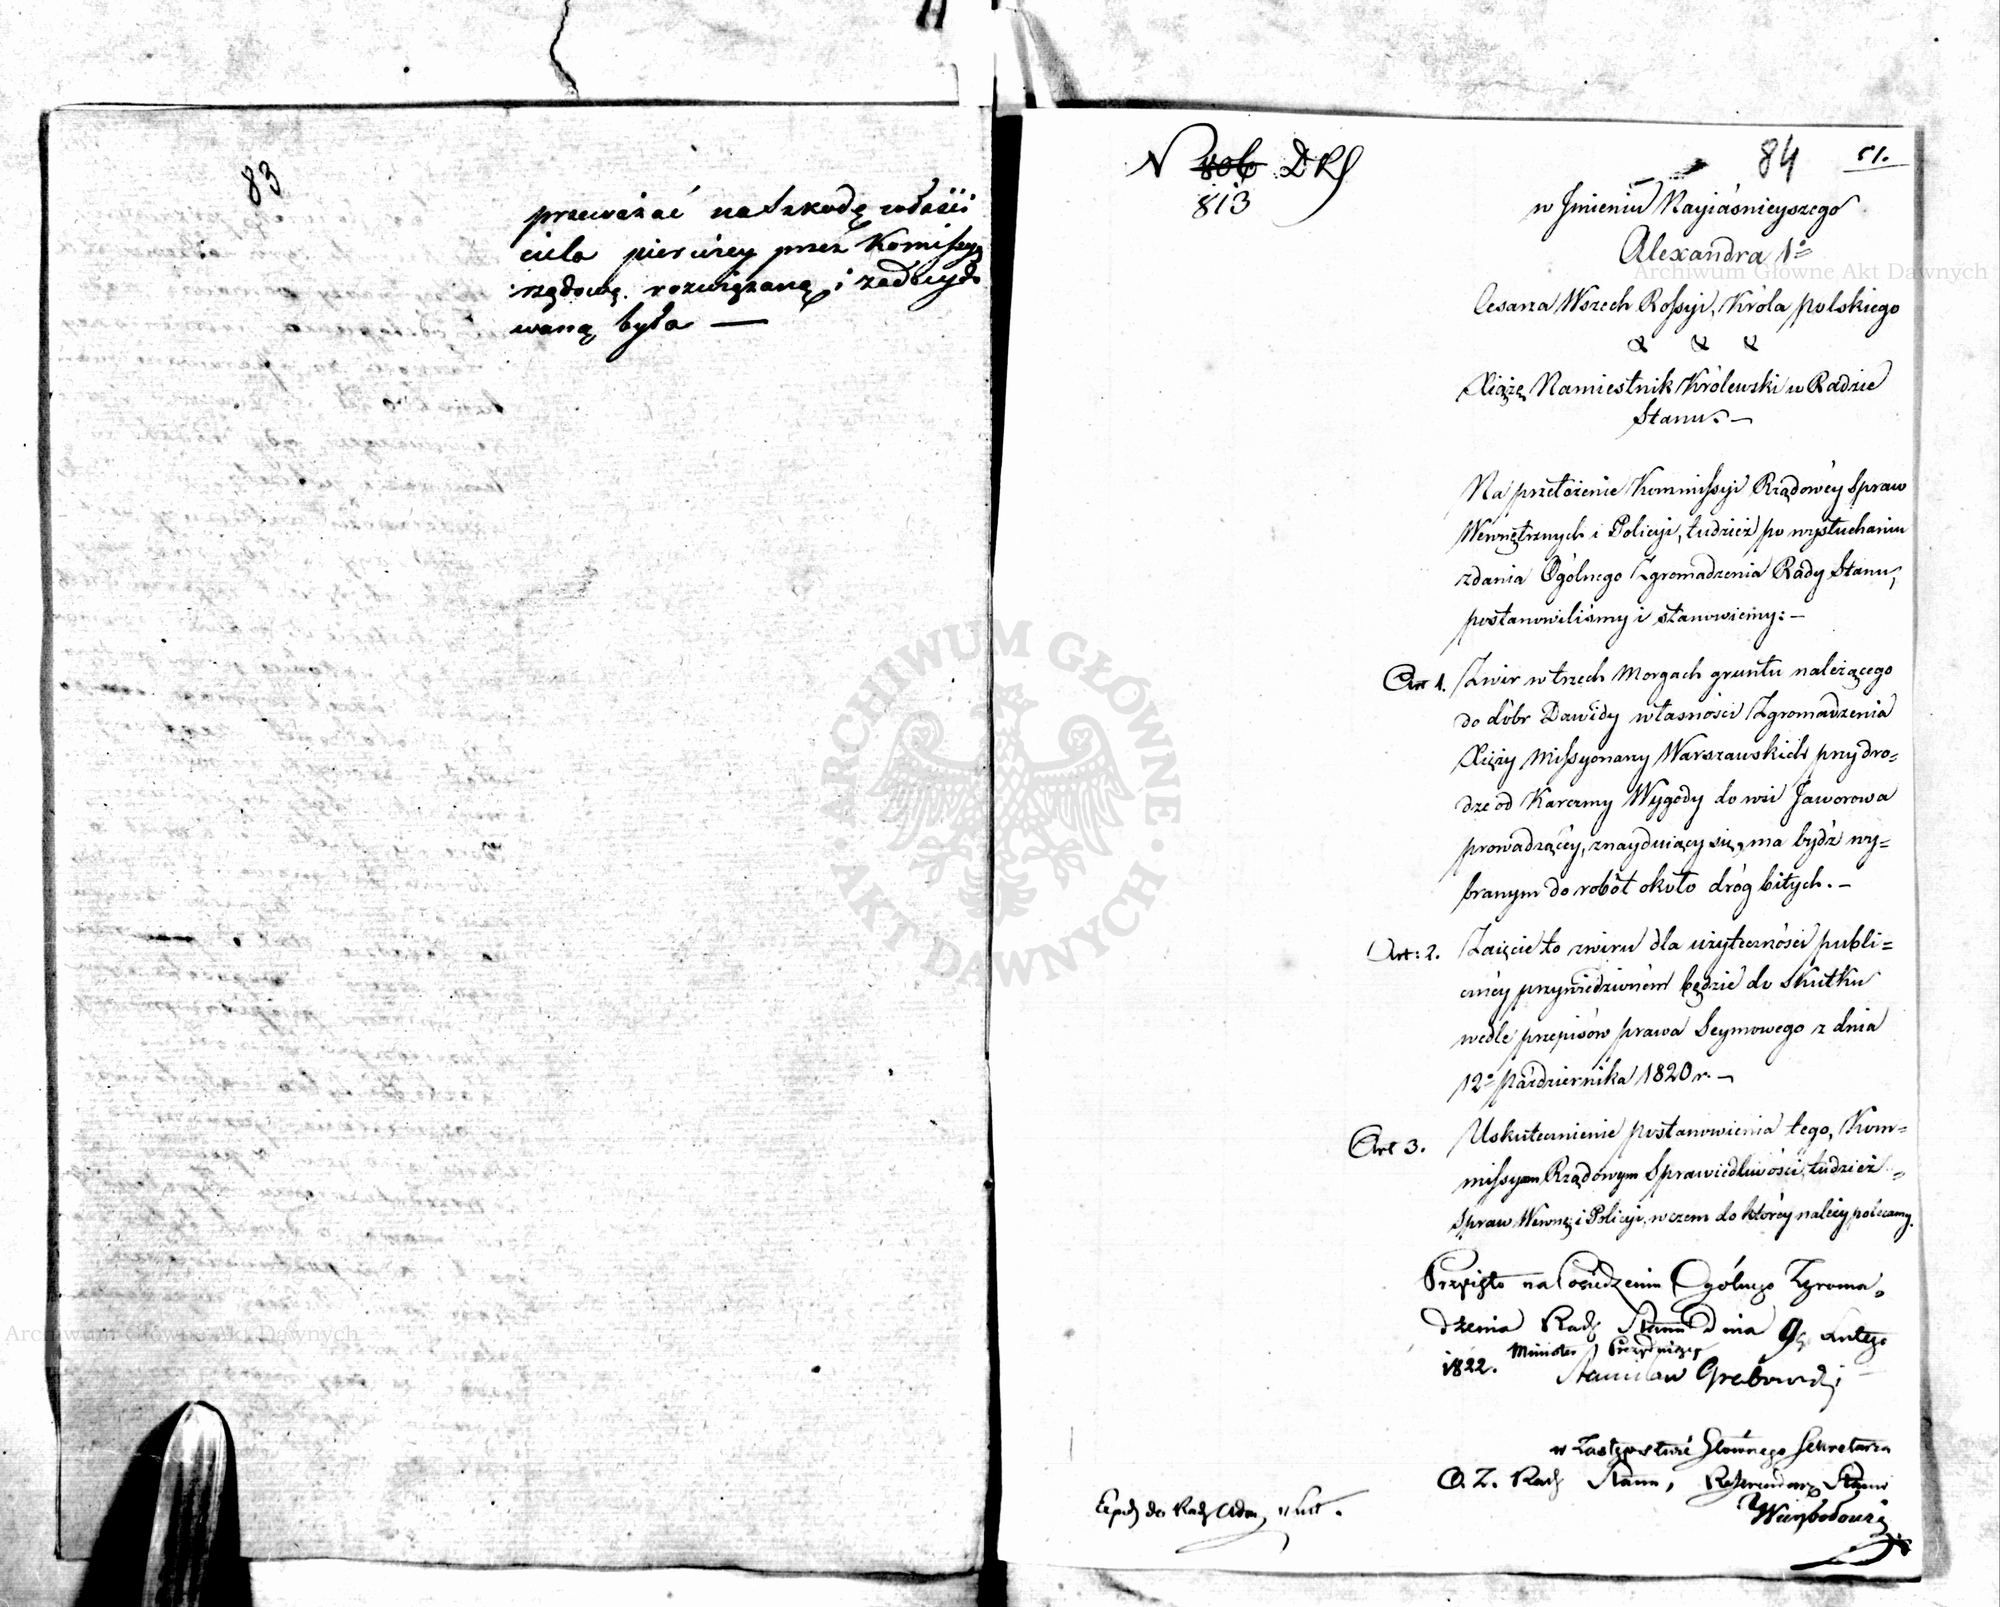 83
przeważać na szkodę właści
ciela pierwszey przez Kommissyą
rządową rozwiązaną i zadecydo
waną była —
N 806 DRS
813
84
51.
w Jmieniu Nayiaśnieyszego
Alexandra 1º
Cesarza Wszech Rossyi, Króla polskiego
& & &
Xiążę Namiestnik Królewski w Radzie
Stanu. —
Na przełożenie Kommissyi Rządowéy Spraw
Wewnętrznych i Policyi, tudzież po wysłuchaniu
zdania Ogólnego Zgromadzenia Rady Stanu,
postanowiliśmy i stanowiemy: —
Art 1. Zwir w trzech Morgach gruntu należącego
do dóbr Dawidy własności Zgromadzenia
Xięży Missyonarzy Warszawskich przy dro=
dze od Karczmy Wygody do wsi Jaworowa
prowadzącéy, znayduiący się, ma bydź wy=
branym do robót około dróg bitych. —
Art: 2. Zaięcie to zwiru dla użyteczności publi=
cznéy przywiedzioném będzie do skutku
wedle przepisów prawa Seymowego z dnia
12º Października 1820 r. —
Art 3. Uskutecznienie postanowienia tego, Kom=
missyom Rządowym Sprawiedliwości, tudzież =
Spraw Wewnę: i Policyi, w czem do któréy należy polecamy.
Przyięto na Posiedzeniu Ogólnego Zgroma=
dzenia Rady Stanu dnia 9º Lutego
1822. Minister Prezyduiący
Stanisław Grabowski
w Zastępstwie Głównego Sekretarza
O. Z. Rady Stanu, Referendarz Stanu
Exped do Rady Adm.
Archiwum Główne Akt Dawnych
ARCHIWUM GŁÓWNE · AKT DAWNYCH ·
Archiwum Główne Akt Dawnych